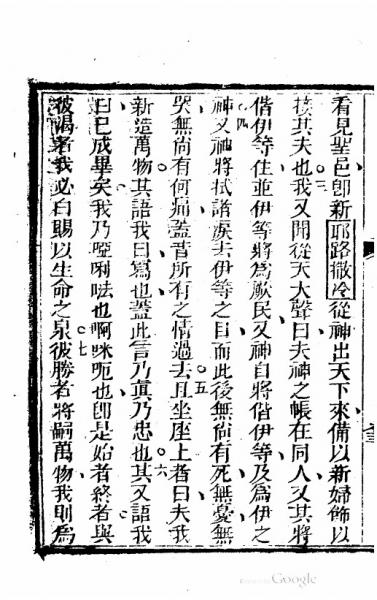 看見聖邑卽新耶路撒冷從神出天下來備以新婦飾以
接其夫也三我又聞從天大聲曰夫神之帳在同人又其將
偕伊等住並伊等將為厥民又神自將偕伊等及為伊之
神四又神將拭諸淚去伊等之目而此後無尚有死無憂無
哭無尚有何痛蓋昔所有之情過去五且坐座上者曰夫我
新造萬物其語我曰寫也蓋此言乃眞乃忠也六其又語我
曰已成畢矣我乃啞唎𠵽也啊咪呃也卽是始者終者與
彼渴者我必白賜以生命之泉七彼勝者將嗣萬物我則爲
Google